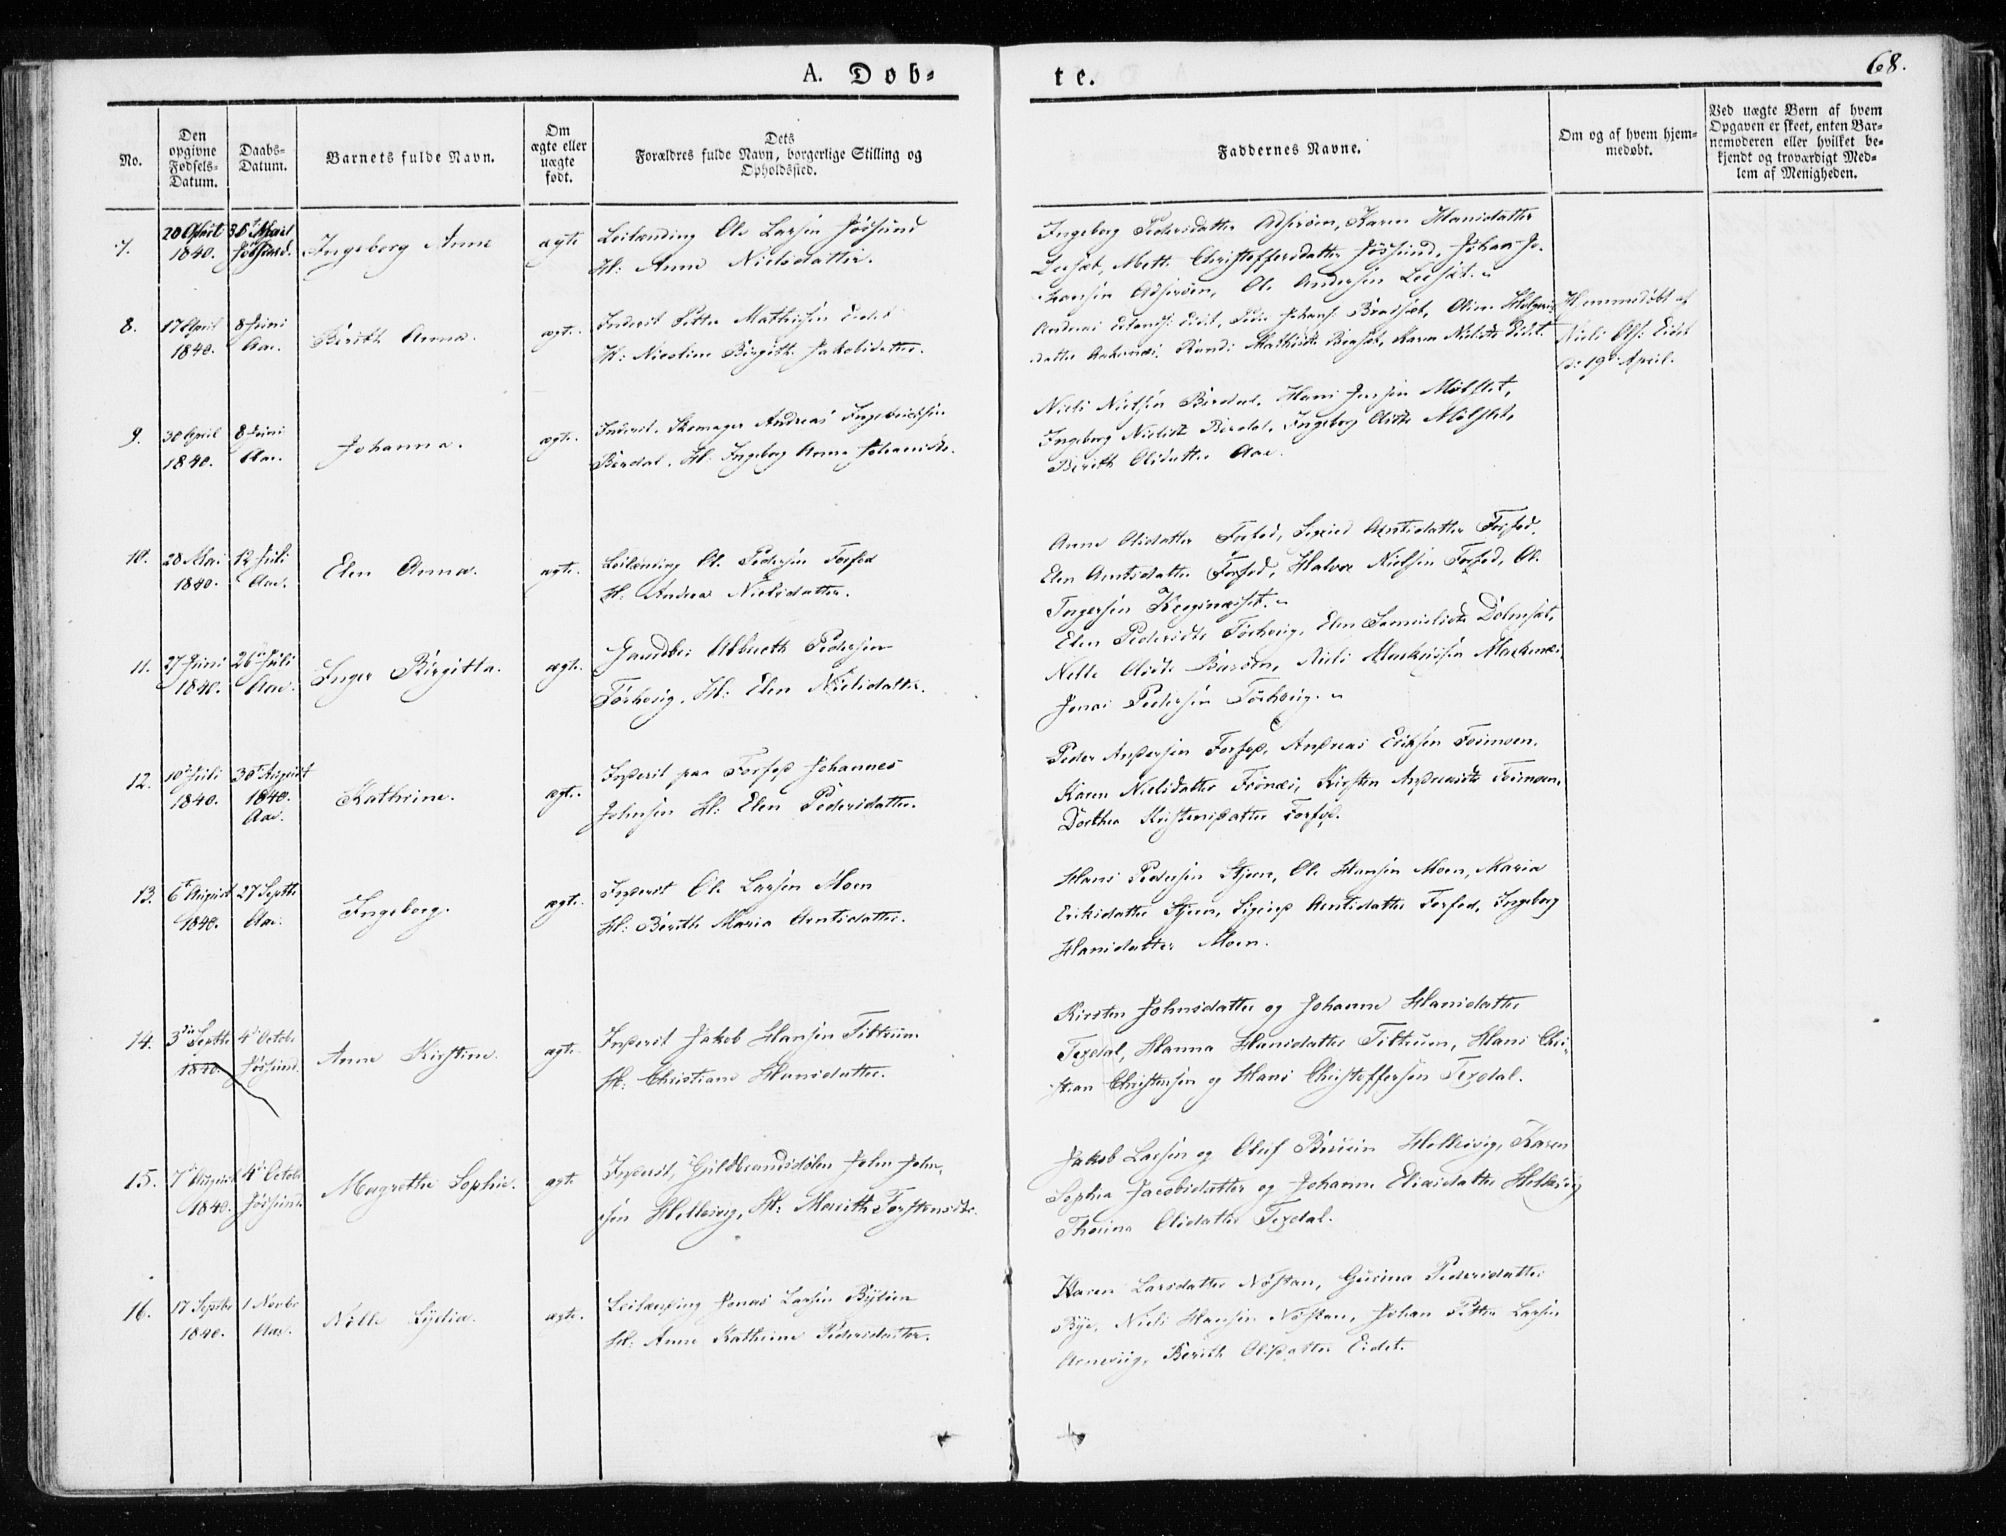 A. Døb-
te.
68.
No.
Den opgivne Fødsels-Datum.
Daabs-Datum.
Barnets fulde Navn.
Om ægte eller uægte født.
Dets Forældres fulde Navn, borgerlige Stilling og Opholdssted.
Faddernes Navne.
Om og af hvem hjemmedøbt.
Ved uægte Børn af hvem Opgaven er skeet, enten Barnemoderen eller hvilket bekjendt og troværdigt Medlem af Menigheden.
7.
20 April 1840.
Jøssund.
Ingeborg Anne
ægte
Leilænding Ole Larsen Jøssund
H: Anne Nielsdatter.
Ingeborg Pedersdatter Karen Hansdatter
Mett. Christoffersdatter Jøssund, Johan Jo-
hansen Ole Andersen
8.
17 April 1840.
8 Juni Aae.
Berith Anna.
ægte.
Inderst Petter Mathisen Eidet
H: Nicoline Birgith Jakobsdatter.
datter Karen Nielsdt Eidet.
Hjemmedøbt af
Niels Ols: Eidet
d: 19de April.
9.
30 April 1840.
8 Juni Aae.
Johanna.
ægte.
Inderst. Skomager Andreas Ingebrigtsen
Berdal. H: Ingeborg Anna Johansdtr.
Niels Nielsen Berdal. Hans Jensen Mølslet,
Ingeborg Nielsdt Berdal. Ingeborg Olsdt Mølslet,
Berith Olsdatter Aae.
10.
28 Mai 1840.
12 Juli Aae.
Elen Anna.
ægte.
Leilænding Ole Pedersen Forfod
H: Andrea Nielsdatter.
Anne Olsdatter Forfod, Sigrid Arntsdatter Forfod,
Elen Arntsdatter Forfod, Halvor Nielsen Forfod, Ole
Ingersen
11.
27 Juni 1840.
26 Juli Aae.
Inger Birgitta.
ægte.
Gaardbr: Albreth Pedersen
Tørhvig. H: Elen Nielsdatter.
Elen Pedersdt Tørhvig, Elen Samuelsdt Dølmset,
Nelle Olsdt Niels Markussen
Jonas Pedersen Tørhvig.
12.
10 Juli 1840.
30 August 1840. Aae.
Kathrine.
ægte.
Inderst paa Forfod Johannes
Johnsen H: Elen Pedersdatter.
Peder Andersen Forfod, Andreas Eriksen
Karen Nielsdatter Kirsten Andreasdt
Dorthea Kristensdatter Forfod.
13.
6 August 1840.
27 Septbr Aae.
Ingeborg.
ægte.
Inderst Ole Larsen Moen
H: Berith Maria Arntsdatter.
Hans Pedersen Stjern, Ole Hansen Moen, Maria
Eriksdatter Stjern, Sigrid Arntsdatter Forfod, Ingeborg
Hansdatter Moen.
14.
3die Septbr 1840
4 Octobr Jøssund.
Anne Kirstine.
ægte.
Inderst Jakob Hansen Titrum
H: Christiane Hansdatter.
Kirsten Johnsdatter og Johanne Hansdatter
Texdal, Hanna Hansdatter Titrum, Hans Chri-
stian Christensen og Hans Christoffersen Texdal.
15.
7 August 1840.
4 Octobr Jøssund.
Magrethe Sophie.
ægte
Inderst, Guldbrandsdølen John John-
sen Hellesvig, H: Marith Torstensdt.
Jakob Larsen og Oluf Hellesvig, Karen
Sophia Jacobsdatter og Johanne Eliasdatter Hellesvig
Thorina Olsdatter Texdal.
16.
17 Septbr 1840.
1 Novbr Aae.
Nelle Lydia.
ægte.
Leilænding Jonas Larsen
H: Anne Kathrine Pedersdatter.
Karen Larsdatter Nøstan, Gurina Pedersdatter
Bye, Niels Hansen Nøstan, Johan Petter Larsen
Arnevig, Berith Olsdatter Eidet.